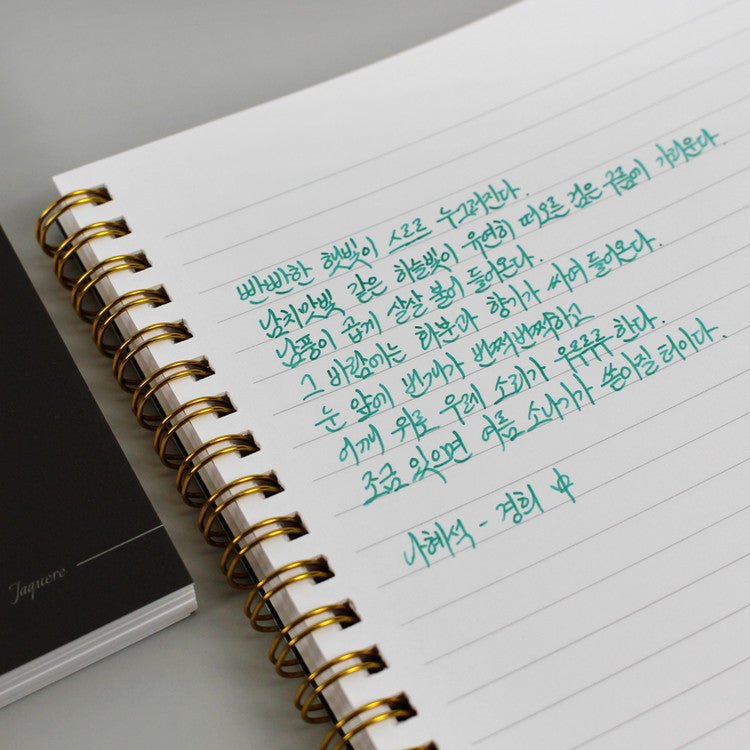 빤빤한 햇빛이 스르르 누그러진다.
남치맛빛 같은 하늘빛이 유연히 떠오른 검은 구름에 가리운다
남풍이 곱게 살살 불어 들어온다.
그 바람에는 화분과 향기가 싸여 들어온다.
눈 앞에 번개가 번쩍번쩍하고
어깨 위로 우레 소리가 우르르르 한다.
조금 있으면 여름 소나기가 쏟아질 터이다.
나혜석 - 경희 中
Jaquere